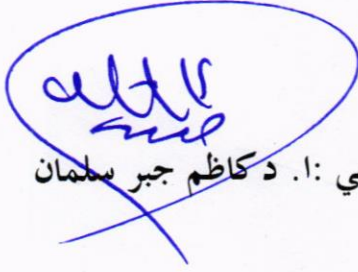 ي :ا. د كاظم جبر سلمان